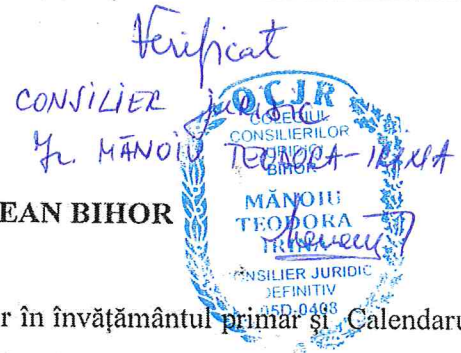 Verificat
CONSILIER JURIDIC
Jr. MĂNOIU TEODORA-IRINA
OCJR
COLEGIUL
CONSILIERILOR
JURIDICI
BIHOR
MĂNOIU
TEODORA
IRINA
CONSILIER JURIDIC
DEFINITIV
05D-0408
EAN BIHOR
r în învățământul primar și Calendaru